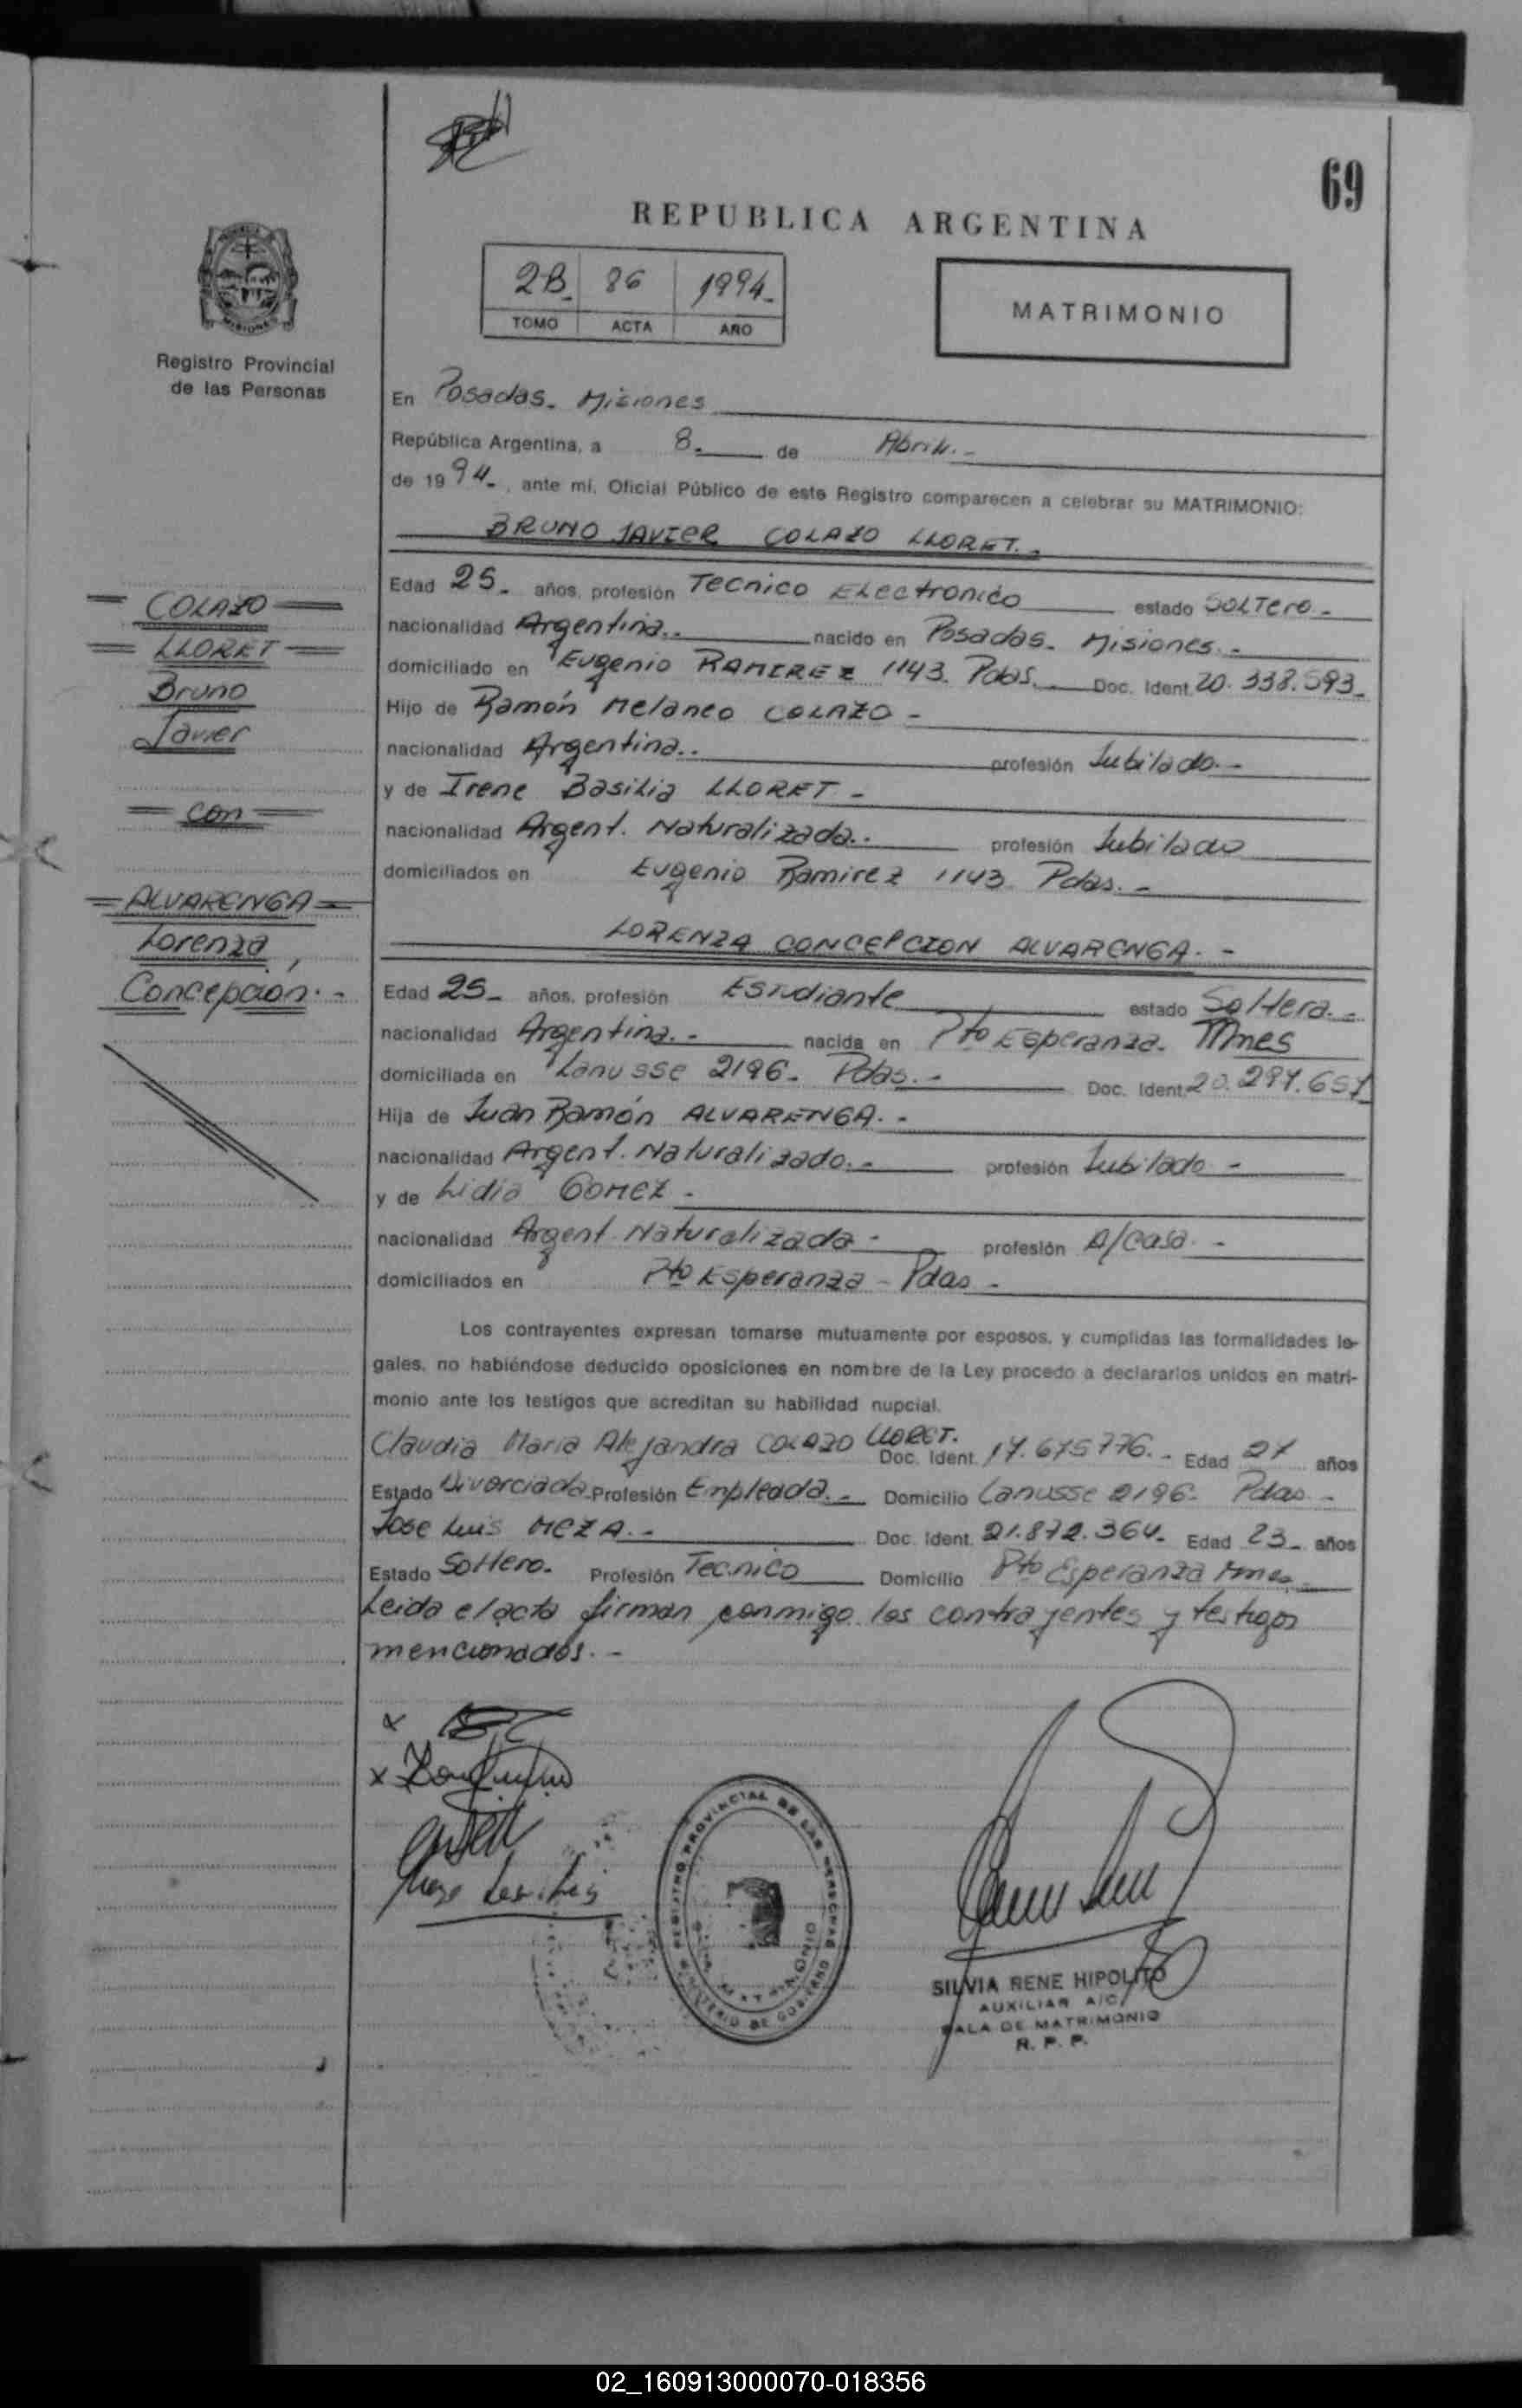 69
REPUBLICA ARGENTINA
2B. 86 1994.-
TOMO ACTA AÑO
MATRIMONIO
MISIONES
Registro Provincial
de las Personas
En Posadas. Misiones
República Argentina, a 8.- de Abril.-
de 1994.-, ante mí, Oficial Público de este Registro comparecen a celebrar su MATRIMONIO:
BRUNO JAVIER COLAZO LLORET.-
Edad 25.- años, profesión Tecnico Electronico estado Soltero.-
nacionalidad Argentina.. nacido en Posadas. Misiones.-
domiciliado en Eugenio RAMIREZ 1143. Pdas. Doc. Ident. 20.338.593.
Hijo de Ramón Melaneo COLAZO -
nacionalidad Argentina.. profesión Jubilado.-
y de Irene Basilia LLORET -
nacionalidad Argent. Naturalizada.. profesión Jubilado
domiciliados en Eugenio Ramirez 1143 Pdas.-
LORENZA CONCEPCION ALVARENGA.-
Edad 25- años, profesión Estudiante estado Soltera.-
nacionalidad Argentina.- nacida en Pto Esperanza. Mnes
domiciliada en Lanusse 2196- Pdas.- Doc. Ident. 20.297.657
Hija de Juan Ramón ALVARENGA.-
nacionalidad Argent. Naturalizado.- profesión Jubilado -
y de Lidia GOMEZ -
nacionalidad Argent. Naturalizada - profesión A/casa.-
domiciliados en Pto Esperanza - Pdas -
Los contrayentes expresan tomarse mutuamente por esposos, y cumplidas las formalidades le-
gales, no habiéndose deducido oposiciones en nombre de la Ley procedo a declararlos unidos en matri-
monio ante los testigos que acreditan su habilidad nupcial.
Claudia Maria Alejandra COLAZO LLORET. Doc. Ident. 17.675776.- Edad 27 años
Estado Divorciada Profesión Empleada.- Domicilio Lanusse 2196- Pdas -
Jose Luis MEZA.- Doc. Ident. 21.872.364- Edad 23- años
Estado Soltero. Profesión Tecnico Domicilio Pto Esperanza Mnes
Leida el acta firman conmigo los contrayentes y testigos
mencionados.-
COLAZO
LLORET
Bruno
Javier
con
ALVARENGA
Lorenza
Concepción.-
x
x
REGISTRO PROVINCIAL DE LAS PERSONAS
MINISTERIO DE GOBIERNO
MATRIMONIO
SILVIA RENE HIPOLITO
AUXILIAR A/C
SALA DE MATRIMONIO
R. P. P.
02_160913000070-018356